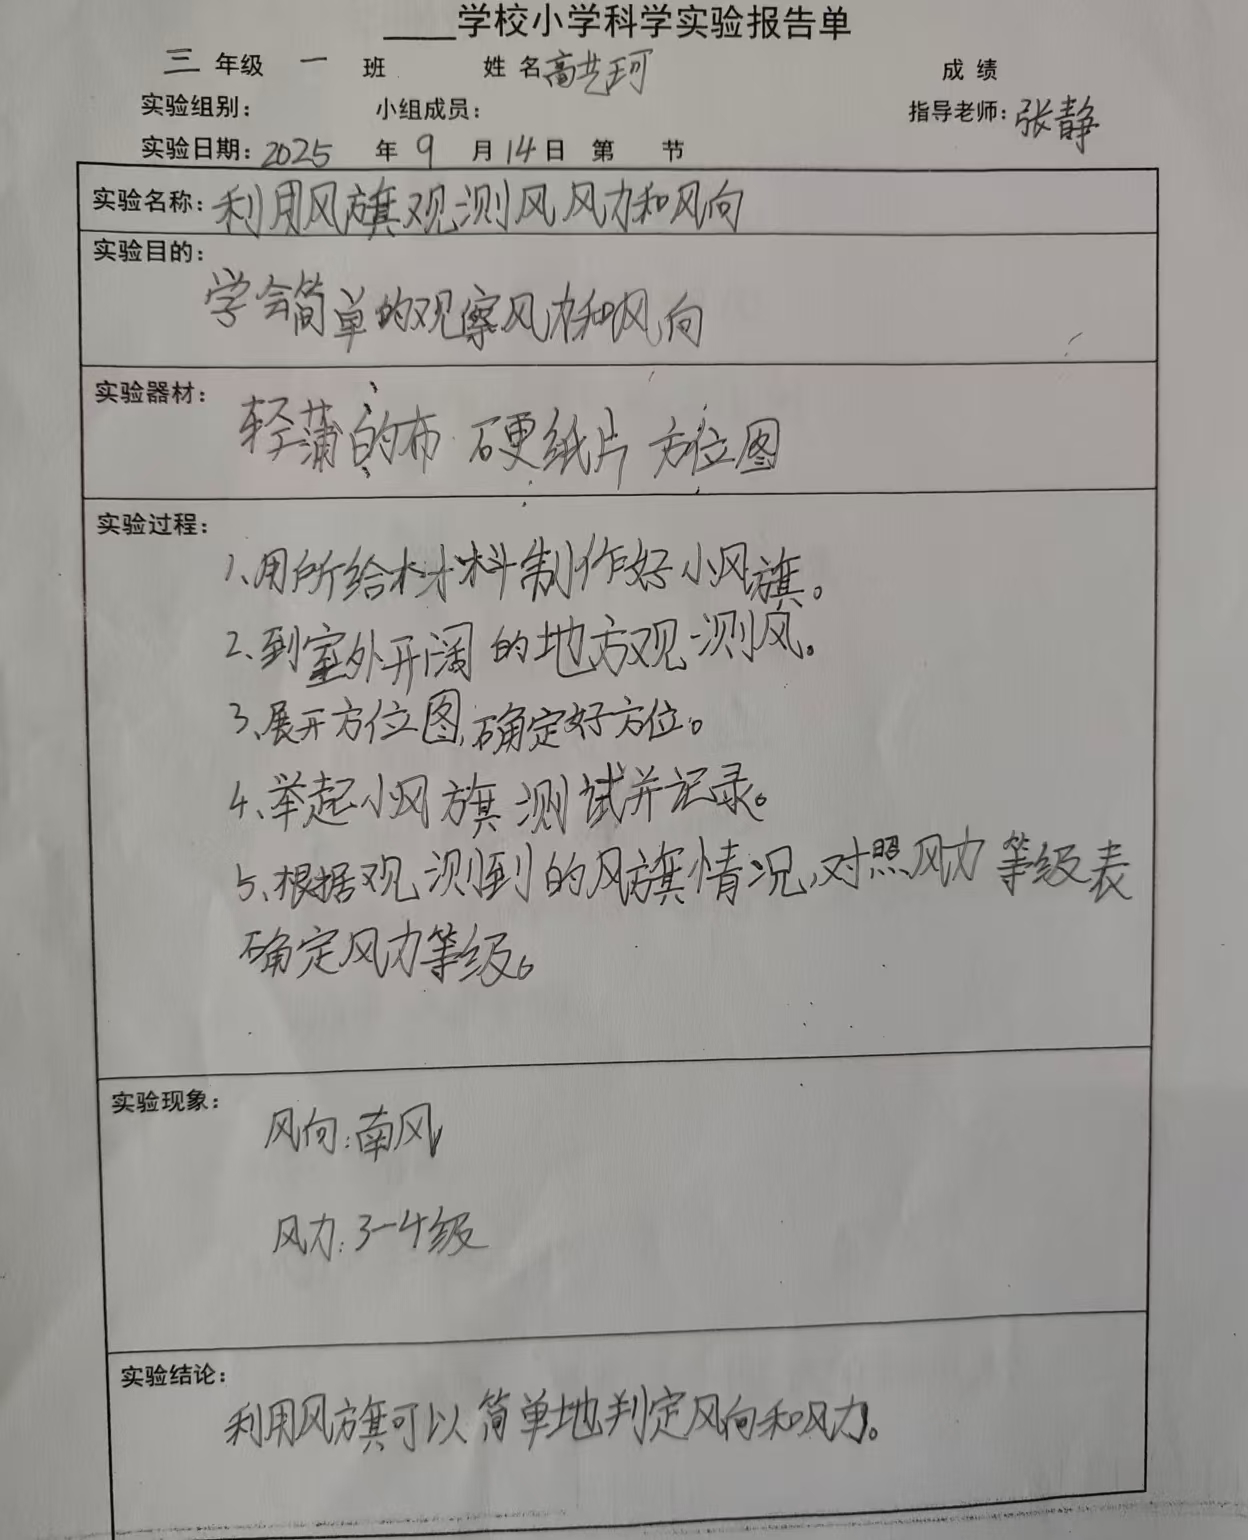 ____学校小学科学实验报告单
三 年级 一 班 姓名 高艺珂 成绩
实验组别： 小组成员： 指导老师：张静
实验日期：2025 年 9 月 14 日 第 节
实验名称：利用风旗观测风风力和风向
实验目的：
学会简单的观察风力和风向
实验器材：
轻蒲的布 硬纸片 方位图
实验过程：
1、用所给材料制作好小风旗。
2、到室外开阔的地方观测风。
3、展开方位图，确定好方位。
4、举起小风旗测试并记录。
5、根据观测到的风旗情况，对照风力等级表
确定风力等级。
实验现象：
风向：南风
风力：3-4级
实验结论：
利用风旗可以简单地判定风向和风力。